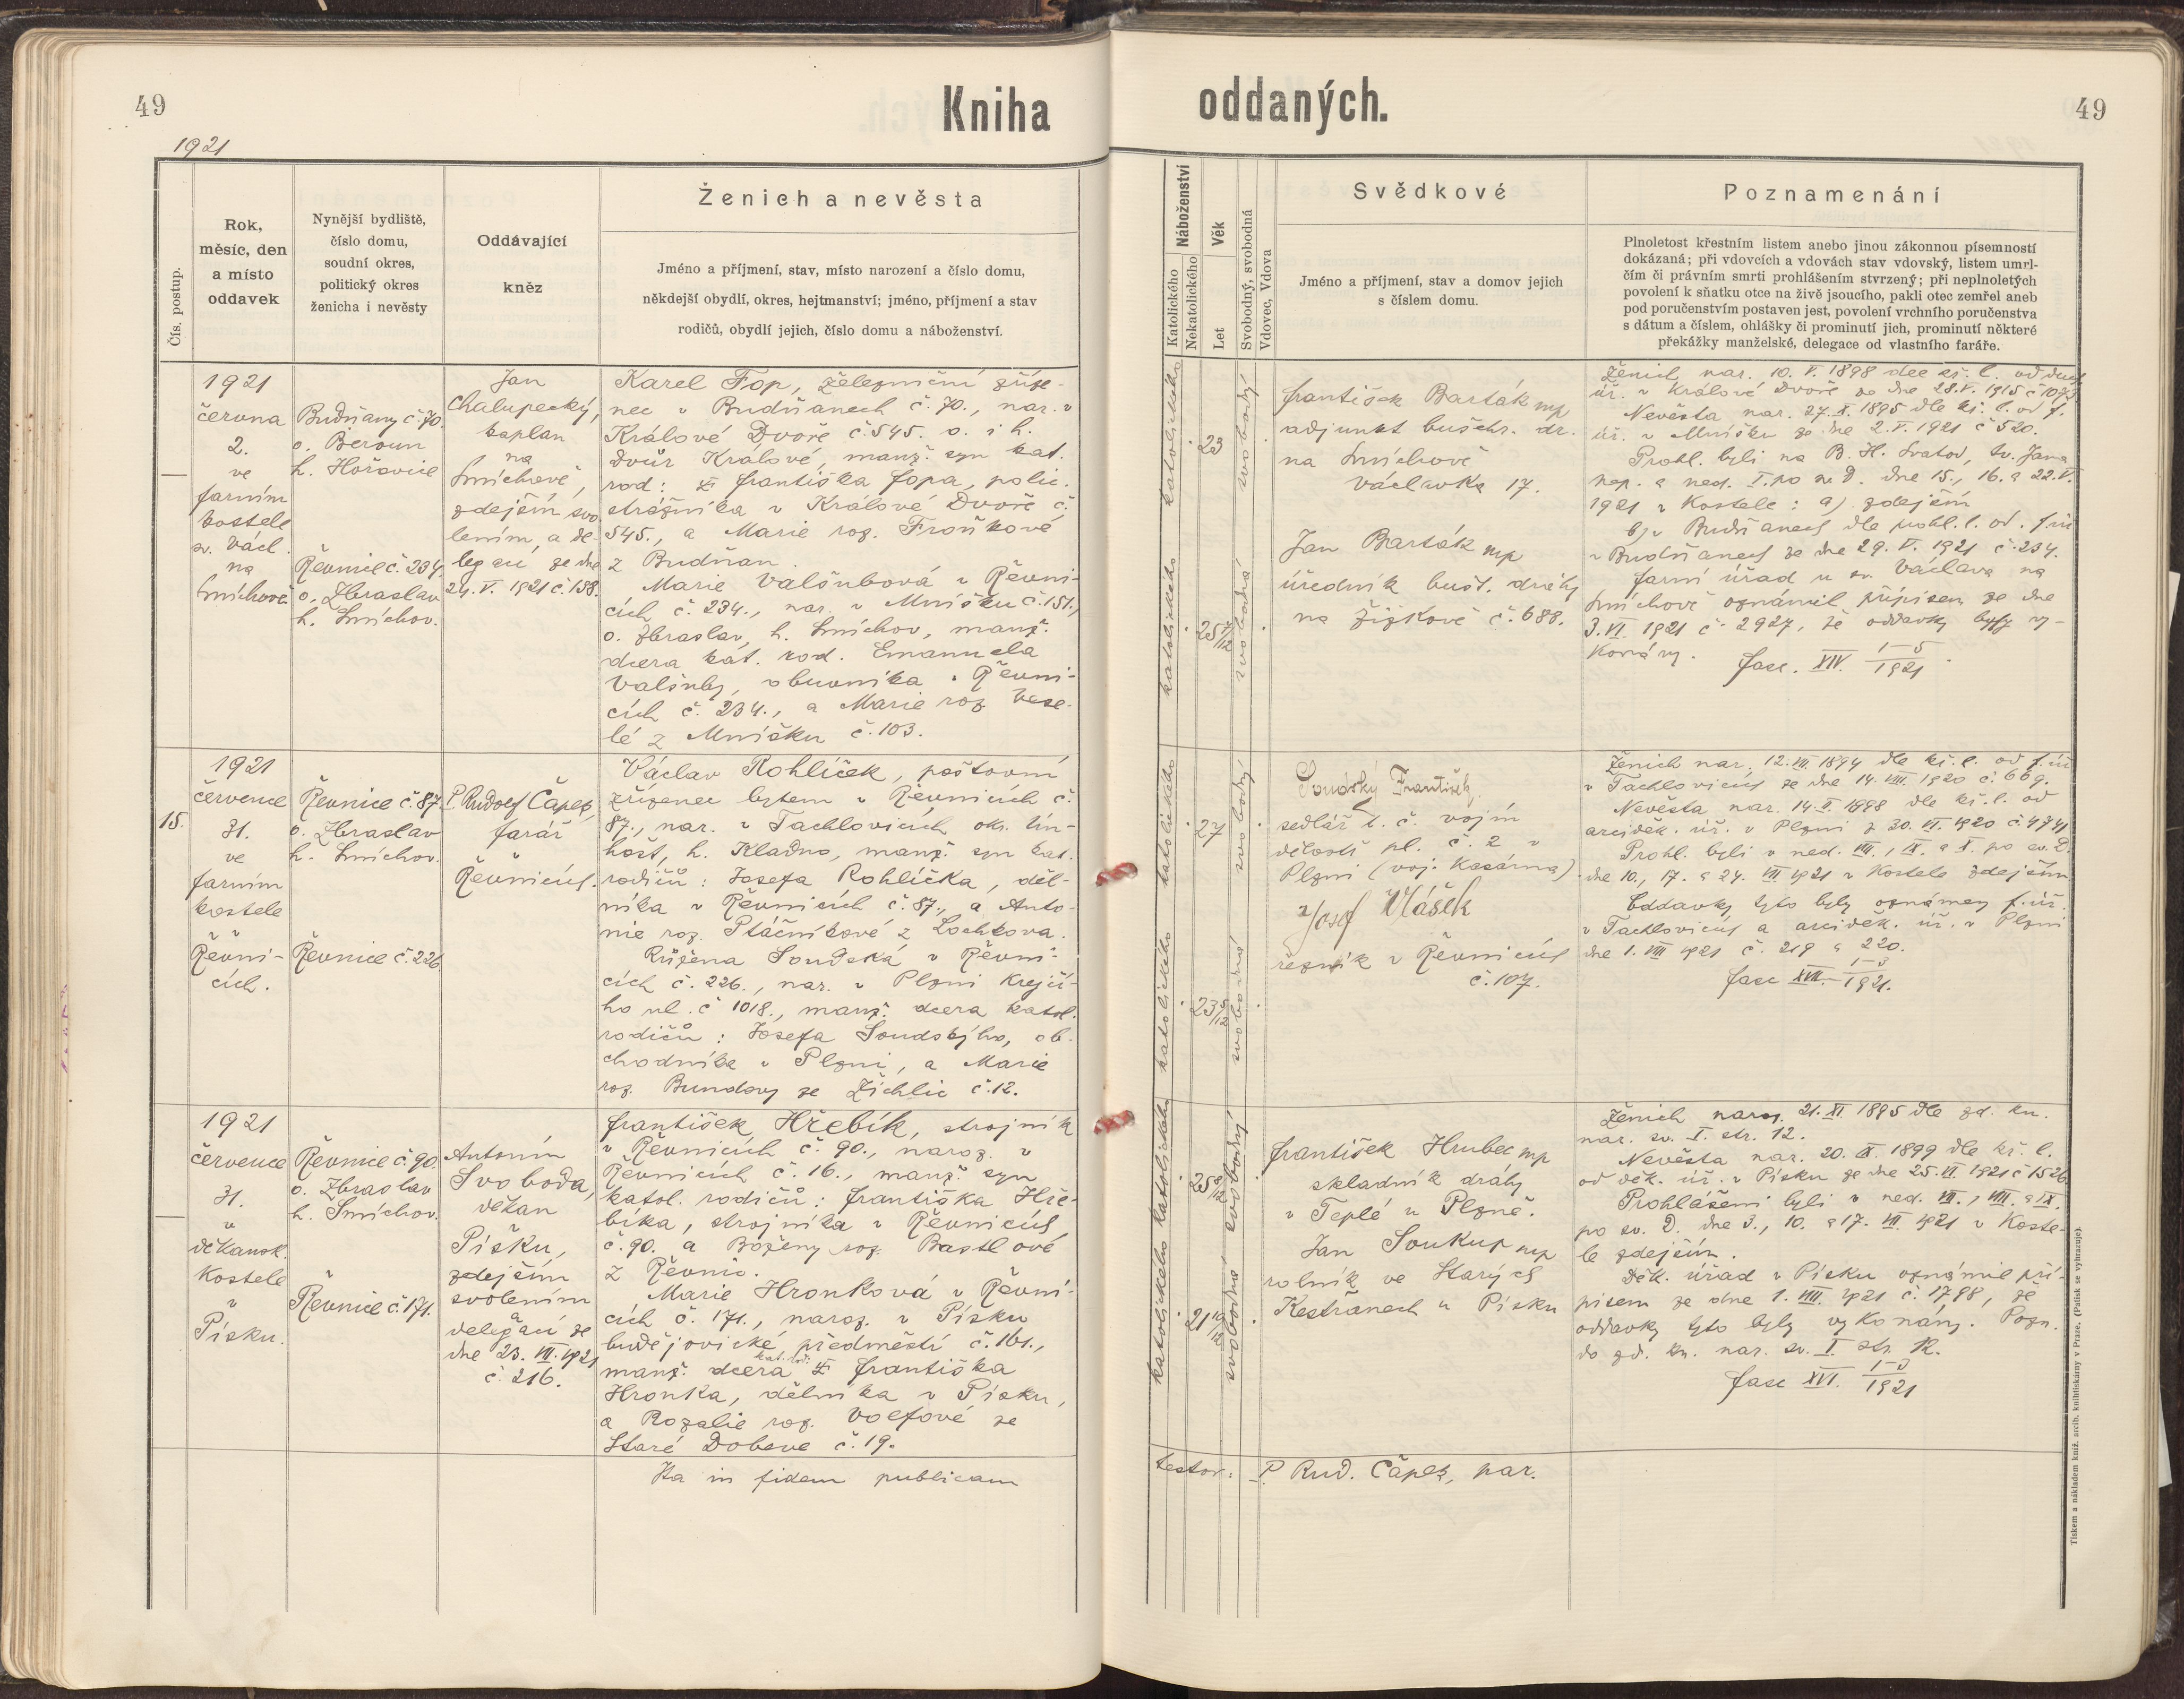 49
Kniha
oddaných.
49
1921
Čís. postup.
Rok,
měsíc, den
a místo
oddavek
Nynější bydliště,
číslo domu,
soudní okres,
politický okres
ženicha i nevěsty
Oddávající
kněz
Ženich a nevěsta
Jméno a příjmení, stav, místo narození a číslo domu,
někdejší obydlí, okres, hejtmanství; jméno, příjmení a stav
rodičů, obydlí jejich, číslo domu a náboženství.
Náboženství
Katolického
Nekatolického
Věk
Let
Svobodný, svobodná
Vdovec, Vdova
Svědkové
Jméno a příjmení, stav a domov jejich
s číslem domu.
Poznamenání
Plnoletost křestním listem anebo jinou zákonnou písemností
dokázaná; při vdovcích a vdovách stav vdovský, listem umrl-
čím či právním smrti prohlášením stvrzený; při neplnoletých
povolení k sňatku otce na živě jsoucího, pakli otec zemřel aneb
pod poručenstvím postaven jest, povolení vrchního poručenstva
s dátum a číslem, ohlášky či prominutí jich, prominutí některé
překážky manželské, delegace od vlastního faráře.
1921
června
2.
ve
farním
kostele
sv. Václ.
na
Smíchově
Budňany č. 70.
o. Beroun
h. Hořovice
Řevnice č. 234
o. Zbraslav
h. Smíchov.
Jan
Chalupecký,
kaplan
na
Smíchově,
zdejším svo
lením, a de-
legací ze dne
24. V. 1921 č. 158.
Karel Fop, železniční zříze-
nec v Budňanech č. 70., nar. v
Králové Dvoře č. 545. o. i h.
Dvůr Králové, manž. syn kat.
rod: Františka Fopa, polic.
strážníka v Králové Dvoře č.
545., a Marie roz. Froňkové
z Budňan.
Marie Valšubová v Řevni-
cích č. 234., nar. v Mníšku č. 151.,
o. Zbraslav, h. Smíchov, manž.
dcera kat. rod. Emanuela
Valšuby, obuvníka v Řevni-
cích č. 234., a Marie roz. Vese-
lé z Mníšku č. 103.
katolického
23
svobodný
katolického
25 7/12
svobodná
František Barták mp
adjunkt buštěhr. dr.
na Smíchově
Václavka 17.
Jan Barták mp
úředník bušt. dráhy
na Žižkově č. 688.
Ženich nar. 10. V. 1898 dle kř. l. od děk.
úř. v Králové Dvoře ze dne 28. V. 1915 č.
Nevěsta nar. 27. X. 1895 dle kř. l. od f.
úř. v Mníšku ze dne 2. V. 1921 č 520.
Prohl. byli na B. H. Svatod., sv. Jana
nep. a ned. I. po sv. D. dne 15., 16. a 22. V.
1921 v Kostele: a) zdejším
b) v Budňanech dle prohl. l. od. f. úř.
v Budňanech ze dne 29. V. 1921 č. 234.
Farní úřad u sv. Václava na
Smíchově oznámil přípisem ze dne
3. VI. 1921 č. 2927, že oddavky byly vy-
konány. Fasc. XIV. 1-5/1921.
15.
1921
července
31.
ve
farním
kostele
v
Řevni-
cích.
Řevnice č. 87.
o. Zbraslav
h. Smíchov.
Řevnice č. 226
P. Rudolf Čapek,
farář
v
Řevnicích.
Václav Rohlíček, poštovní
zřízenec bytem v Řevnicích č.
87., nar. v Tachlovicích okr. Un-
hošt, h. Kladno, manž. syn kat.
rodičů: Josefa Rohlíčka, děl-
níka v Řevnicích č. 87., a Anto-
nie roz. Ptáčníkové z Lochkova.
Růžena Soudská v Řevni-
cích č. 226., nar. v Plzni Krejčí-
ho ul. č 1018., manž. dcera katol.
rodičů: Josefa Soudského, ob-
chodníka v Plzni, a Marie
roz. Bundovy ze Žichlic č. 12.
katolického
27
svobodný
katolického
23 5/12
svobodná
Soudský František
sedlář t. č. vojín
děl. pl. č. 2 v
Plzni (voj. Kasárna)
Josef Vlášek
řezník v Řevnicích
č. 107.
Ženich nar. 12. VII. 1894 dle kř. l. od f. úř.
v Tachlovicích ze dne 14. VIII. 1920 č. 669.
Nevěsta nar. 14. II. 1898 dle kř. l. od
arciděk. úř. v Plzni z 30. VI. 1920 č. 4741
Prohl. byli v ned. VIII., IX. a X. po sv. D.
dne 10., 17. a 24. VII 1921 v Kostele zdejším
Oddavky tyto byly oznámeny f. úř.
v Tachlovicích a arciděk. úř. v Plzni
dne 1. VIII 1921 č. 219 a 220.
Fasc XVII. 1-3/1921.
1921
července
31.
v
děkansk.
Kostele
v
Písku.
Řevnice č. 90
o. Zbraslav
h. Smíchov.
Řevnice č. 171.
Antonín
Svoboda,
děkan
v
Písku,
zdejším
svolením
a
delegací ze
dne 23. VII. 1921
č. 216.
František Hřebík, strojník
v Řevnicích č. 90., naroz. v
Řevnicích č. 16., manž. syn
katol. rodičů: Františka Hře-
bíka, strojníka v Řevnicích
č. 90. a Boženy roz. Bastlové
z Řevnic.
Marie Hronková v Řevni-
cích č. 171., naroz. v Písku
budějovické předměstí č. 161.,
manž. dcera kat. rod. Františka
Hronka, dělníka v Písku,
a Rozalie roz. Volfové ze
Staré Dobeve č. 19.
katolického
25 8/12
svobodný
katolického
21 10/12
svobodná
František Hrubec mp
skladník dráhy
v Teplé u Plzně.
Jan Soukup mp
rolník ve Starých
Kestřanech u Písku
Ženich naroz. 21. XI. 1895 dle zd. kn.
nar. sv. I. str. 12.
Nevěsta nar. 20. IX. 1899 dle kř. l.
od děk. úř. v Písku ze dne 25. VI. 1921 č 1526
Prohlášeni byli v ned. VII., VIII. a IX.
po sv. D. dne 3., 10. a 17. VII. 1921 v Koste-
le zdejším.
Děk. úřad v Písku oznámil pří-
pisem ze dne 1. VIII. 1921 č. 1798, že
oddavky tyto byly vykonány. Pozn.
do zd. kn. nar. sv. I. str. 12.
Fasc XVI. 1-3/1921
Ita in fidem publicam
testor: P. Rud. Čapek, par.
Tiskem a nákladem kníž. arcib. knihtiskárny v Praze. (Patisk se vyhrazuje)